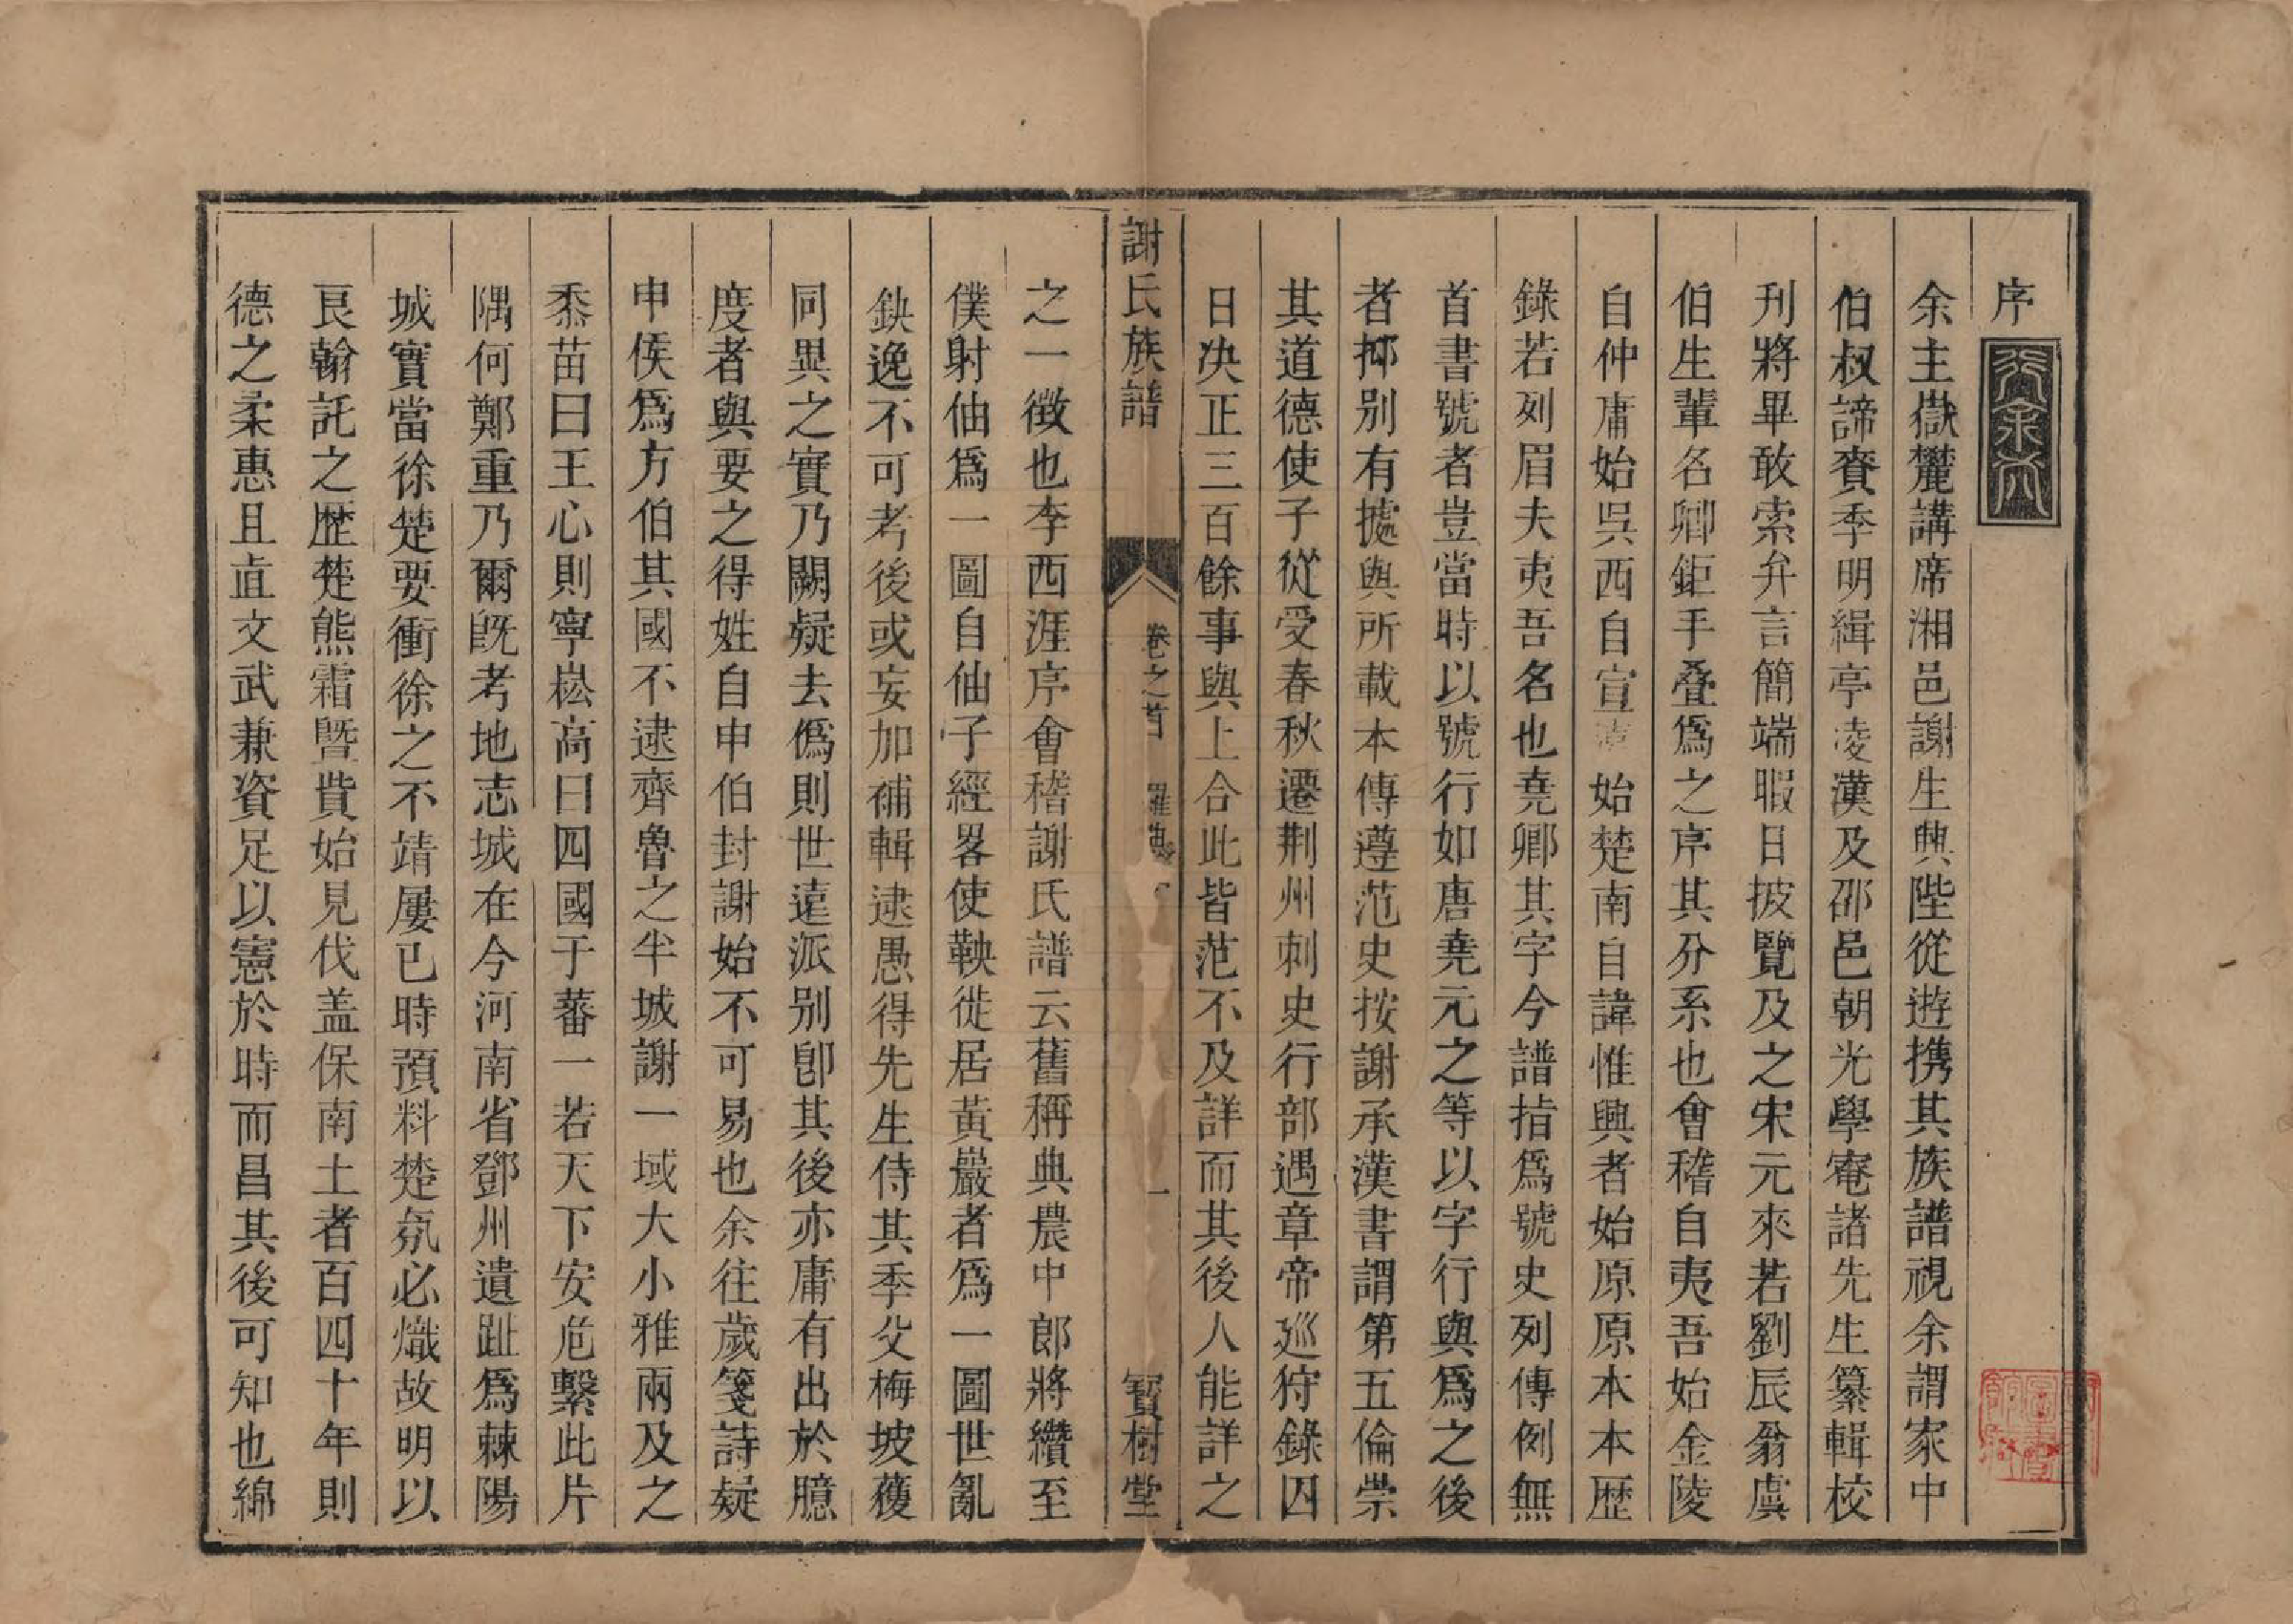 序
余主嶽麓講席湘邑謝生興陛從遊携其族譜視余謂家中
伯叔諦賚季明緝亭凌漢及邵邑朝光學菴諸先生纂輯校
刊將畢敢索弁言簡端暇日披覽及之宋元來若劉辰翁虞
伯生輩名卿鉅手叠爲之序其分系也會稽自夷吾始金陵
自仲庸始吳西自宣 始楚南自諱惟興者始原原本本歷
錄若列眉夫夷吾名也堯卿其字今譜指爲號史列傳例無
首書號者豈當時以號行如唐堯元之等以字行與爲之後
者抑别有據與所載本傳遵范史按謝承漢書謂第五倫崇
其道德使子從受春秋遷荆州刺史行部遇章帝巡狩錄囚
日決正三百餘事與上合此皆范不及詳而其後人能詳之
謝氏族譜 卷之首 羅典 一 寶樹堂
之一徵也李西涯序會稽謝氏譜云舊稱典農中郎將纘至
僕射伷爲一圖自伷子經畧使鞅徙居黃巖者爲一圖世亂
鈌逸不可考後或妄加補輯逮愚得先生侍其季父梅坡蒦
同異之實乃闕疑去僞則世遠派别卽其後亦庸有出於臆
度者與要之得姓自申伯封謝始不可易也余往歲箋詩疑
申侯爲方伯其國不逮齊魯之半城謝一域大小雅兩及之
黍苗曰王心則寧崧高曰四國于蕃一若天下安危繫此片
隅何鄭重乃爾旣考地志城在今河南省鄧州遺趾爲棘陽
城實當徐楚要衝徐之不靖屢已時預料楚氛必熾故明以
良翰託之歷楚熊霜暨貲始見伐盖保南土者百四十年則
德之柔惠且直文武兼資足以憲於時而昌其後可知也綿